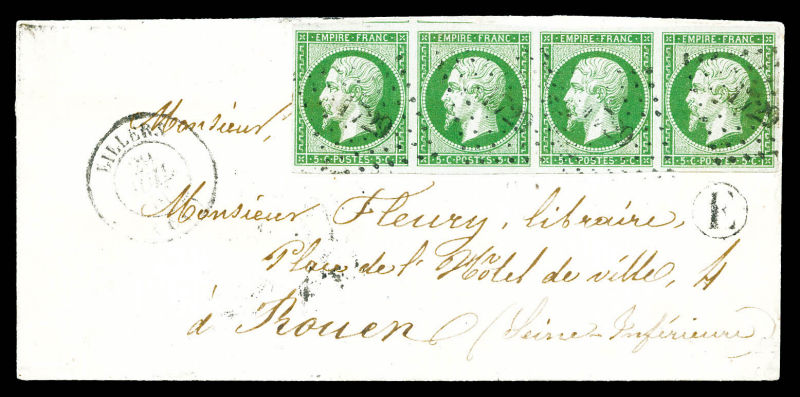 EMPIRE FRANC EMPIRE FRANC EMPIRE FRANC EMPIRE FRANC
5 · C · POSTES · 5 · C 5 · C · POSTES · 5 · C 5 · C · POSTES · 5 · C 5 · C · POSTES · 5 · C
LILLERS
Monsieur,
E
Monsieur Fleury, libraire,
Place de l'Hôtel de ville, 4
à Rouen (Seine-Inférieure)